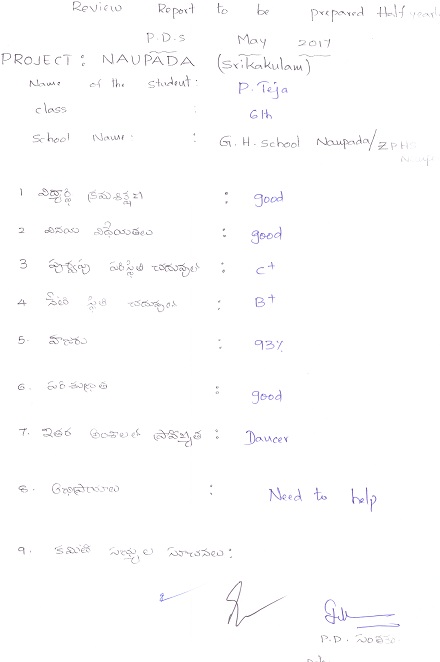 Review Report to be prepared Half yearl
P.D.S May 2017
PROJECT: NAUPADA (Srikakulam)
Name of the Student: P. Teja
class : 6th
School Name: : G.H. School Naupada/ZPHS
1 విద్యార్థి క్రమశిక్షణ : good
2 వినయ విధేయతలు : good
3 పూర్వపు పరిస్థితి చదువులో : C+
4 నేటి స్థితి చదువులో : B+
5. హాజరు : 93%
6. పరిశుభ్రత : good
7. ఇతర అంశాలలో ప్రావీణ్యత : Dancer
8. అభిప్రాయాలు : Need to help
9. కమిటి సభ్యుల సూచనలు:
P.D.